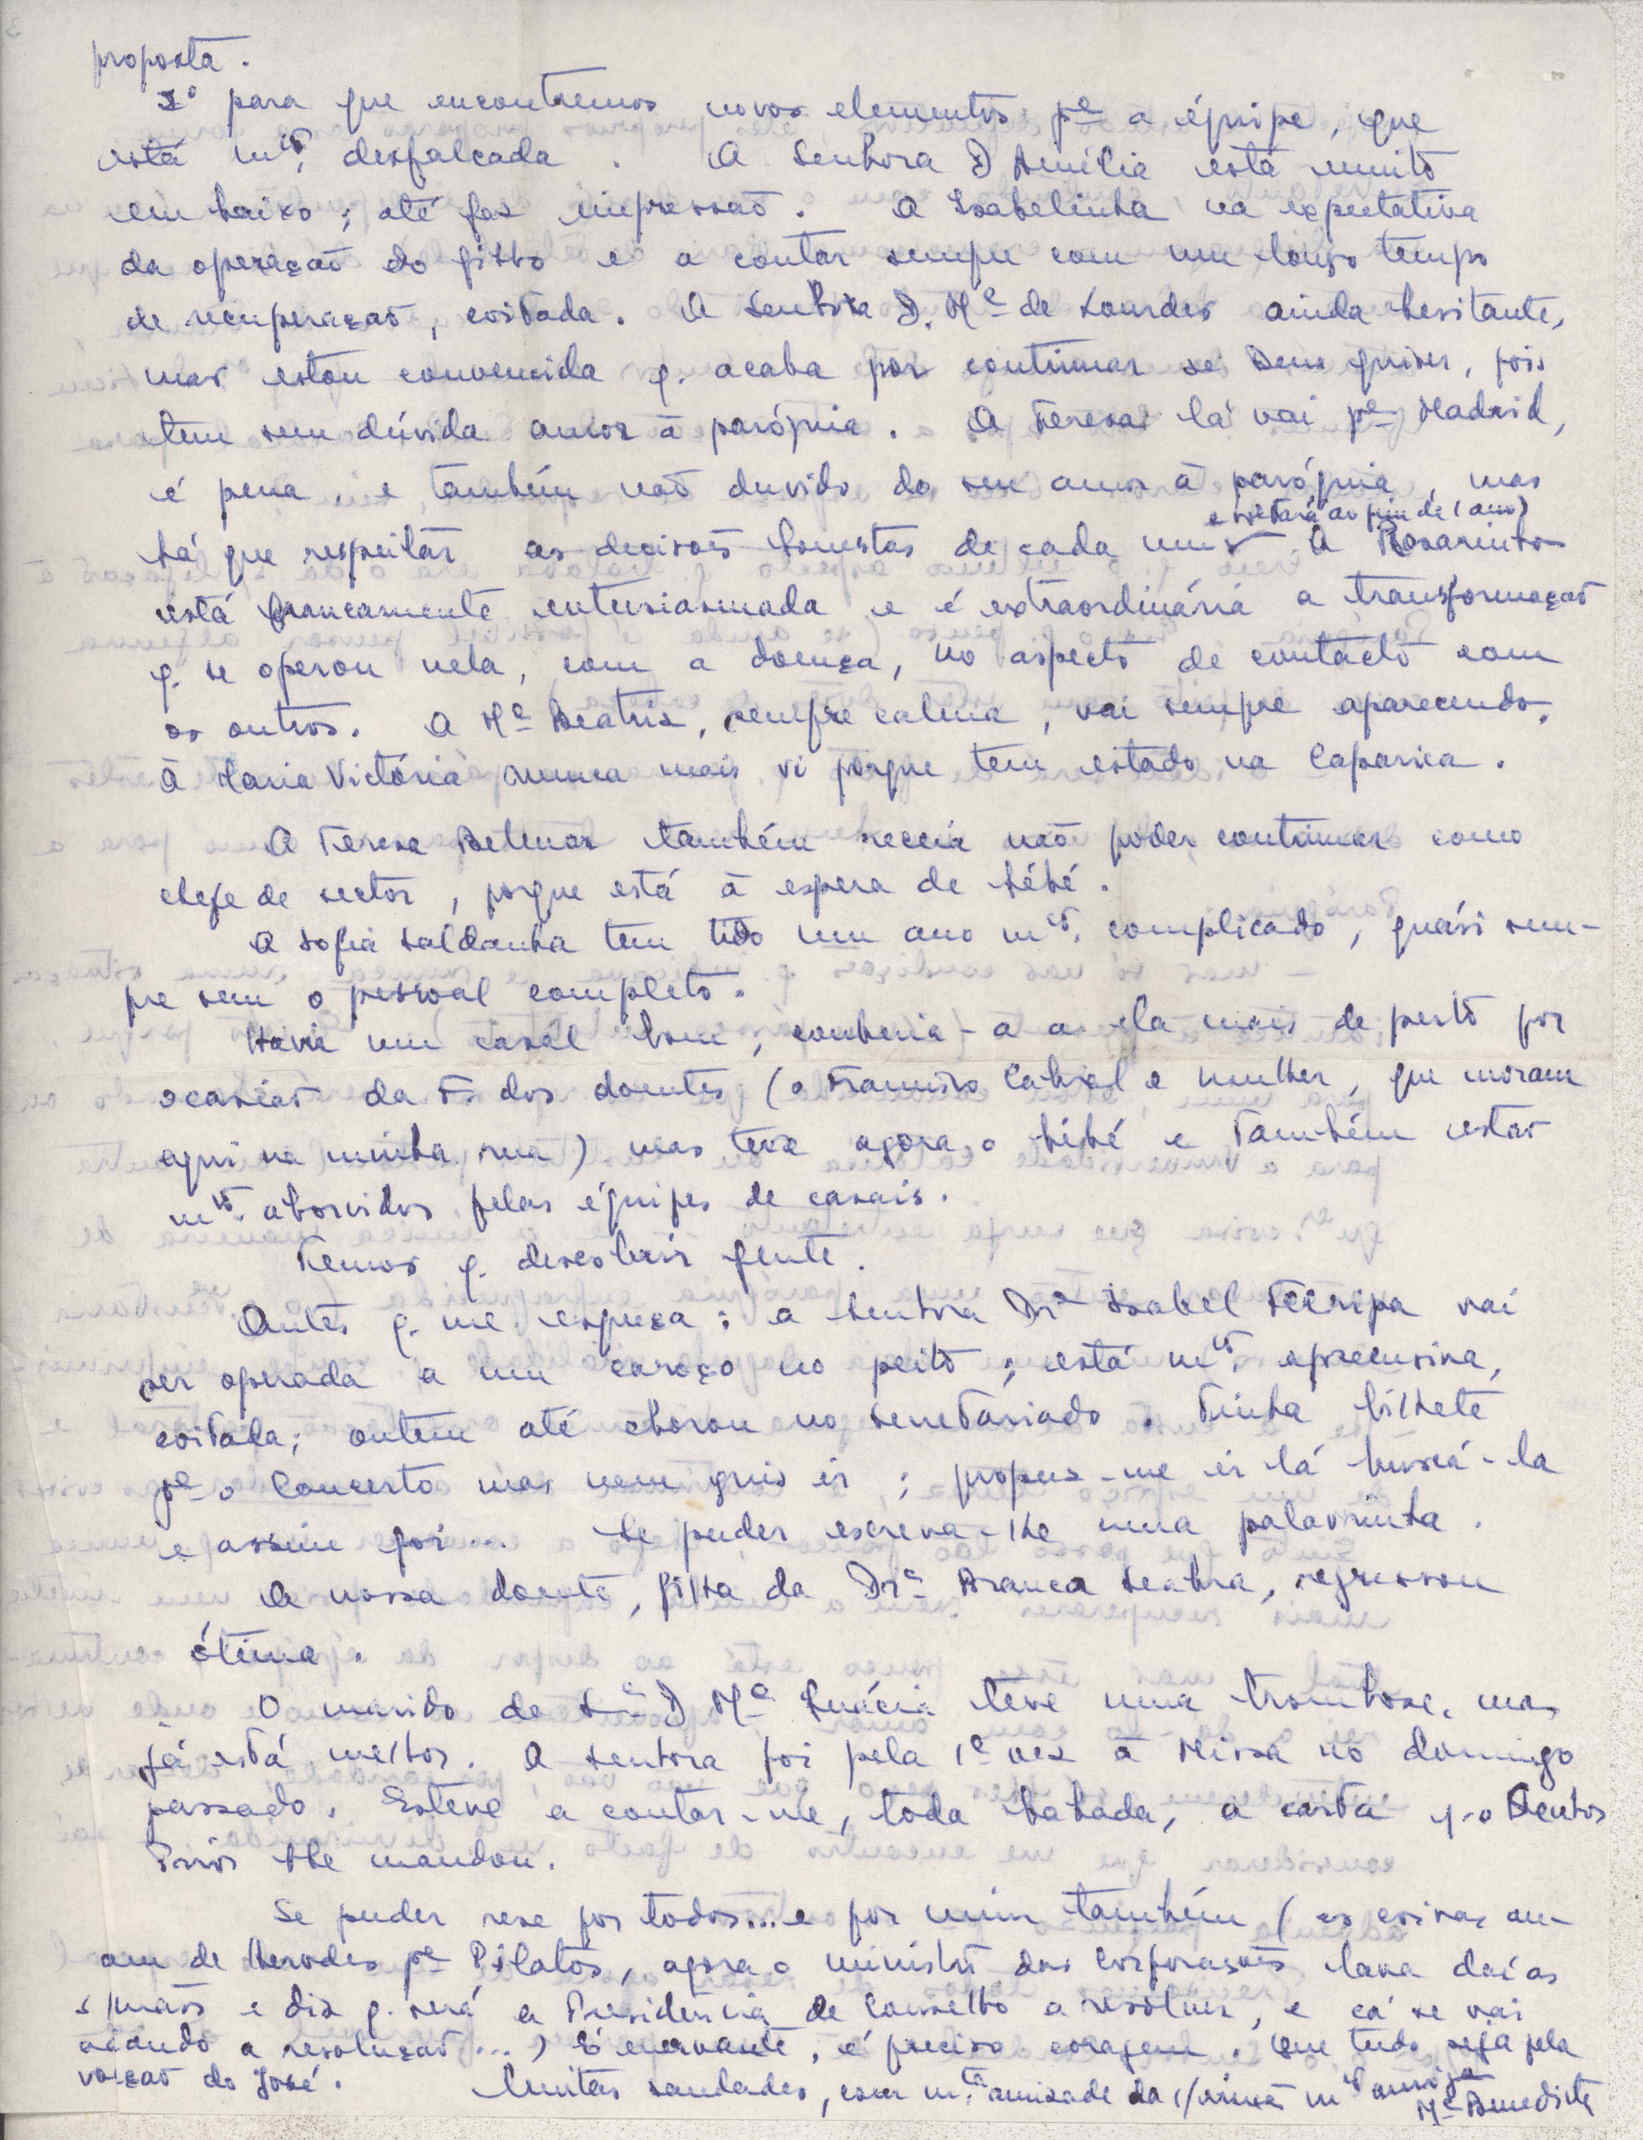 proposta.
2º para que encontremos novos elementos pª a équipe, que
está mtº. desfalcada. A Senhora D Amélia está muito
em baixo; até faz impressão. A Isabelinha na expectativa
da operação do filho e a contar sempre com um longo tempo
de recuperação, coitada. A Senhora D. Mª de Lourdes ainda hesitante,
mas estou convencida q. acaba por continuar se Deus quiser, pois
tem sem dúvida amor à paróquia. A Teresa lá vai pª Madrid,
é pena, e também não duvido do seu amor à paróquia, mas
e voltará ao fim de 1 ano)
há que respeitar as decisões honestas de cada um. A Rosarinho
está francamente entusiasmada e é extraordinária a transformação
q. se operou nela, com a doença, no aspecto de contacto com
os outros. A Mª Beatriz, sempre calma, vai sempre aparecendo.
A Maria Victória nunca mais vi porque tem estado na Caparica.
A Teresa também receia não poder continuar como
chefe de sector, porque está à espera de bébé.
A Sofia Saldanha tem tido um ano mtº. complicado, quási sem-
pre sem o pessoal completo.
Havia um casal bom, conheci-a a ela mais de perto por
ocasião da F. dos doentes (o Francisco Cabral e mulher, que moram
aqui na minha rua) mas teve agora o bébé e também estão
mtº. aborvidos pelas équipes de casais.
Temos q. descobrir gente.
Antes q. me esqueça: a Senhora Drª Isabel vai
ser operada a um caroço no peito; está mtº. apreensiva,
coitada; ontem até chorou no Secretariado. Tinha bilhete
pª o Concerto mas nem quis ir; propus-me ir lá buscá-la
e assim foi... Se puder escreva-lhe uma palavrinha.
A nossa doente, filha da Drª Branca Seabra, regressou
ótima.
O marido da Sª D Mª Inácia teve uma trombose, mas
já está melhor. A senhora foi pela 1ª vez à Missa no domingo
passado. Esteve a contar-me, toda babada, a carta q. o Senhor
Prior lhe mandou.
Se puder reze por todos... e por mim também (as coisas an-
am de Herodes pª Pilatos, agora o ministro das Corporações lava daí as
s/ mãos e diz q. será a Presidência de Conselho a resolver, e cá se vai
adiando a resolução...) É enervante, é preciso coragem. Que tudo seja pela
vocação do José. Muitas saudades, com mtª. amizade da s/ mtº amiga
Mª Benedicta